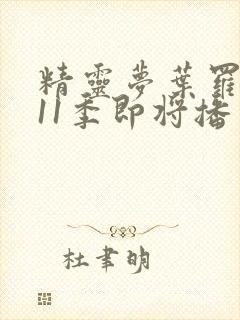 精靈夢葉羅
11季即將播
杜聿明